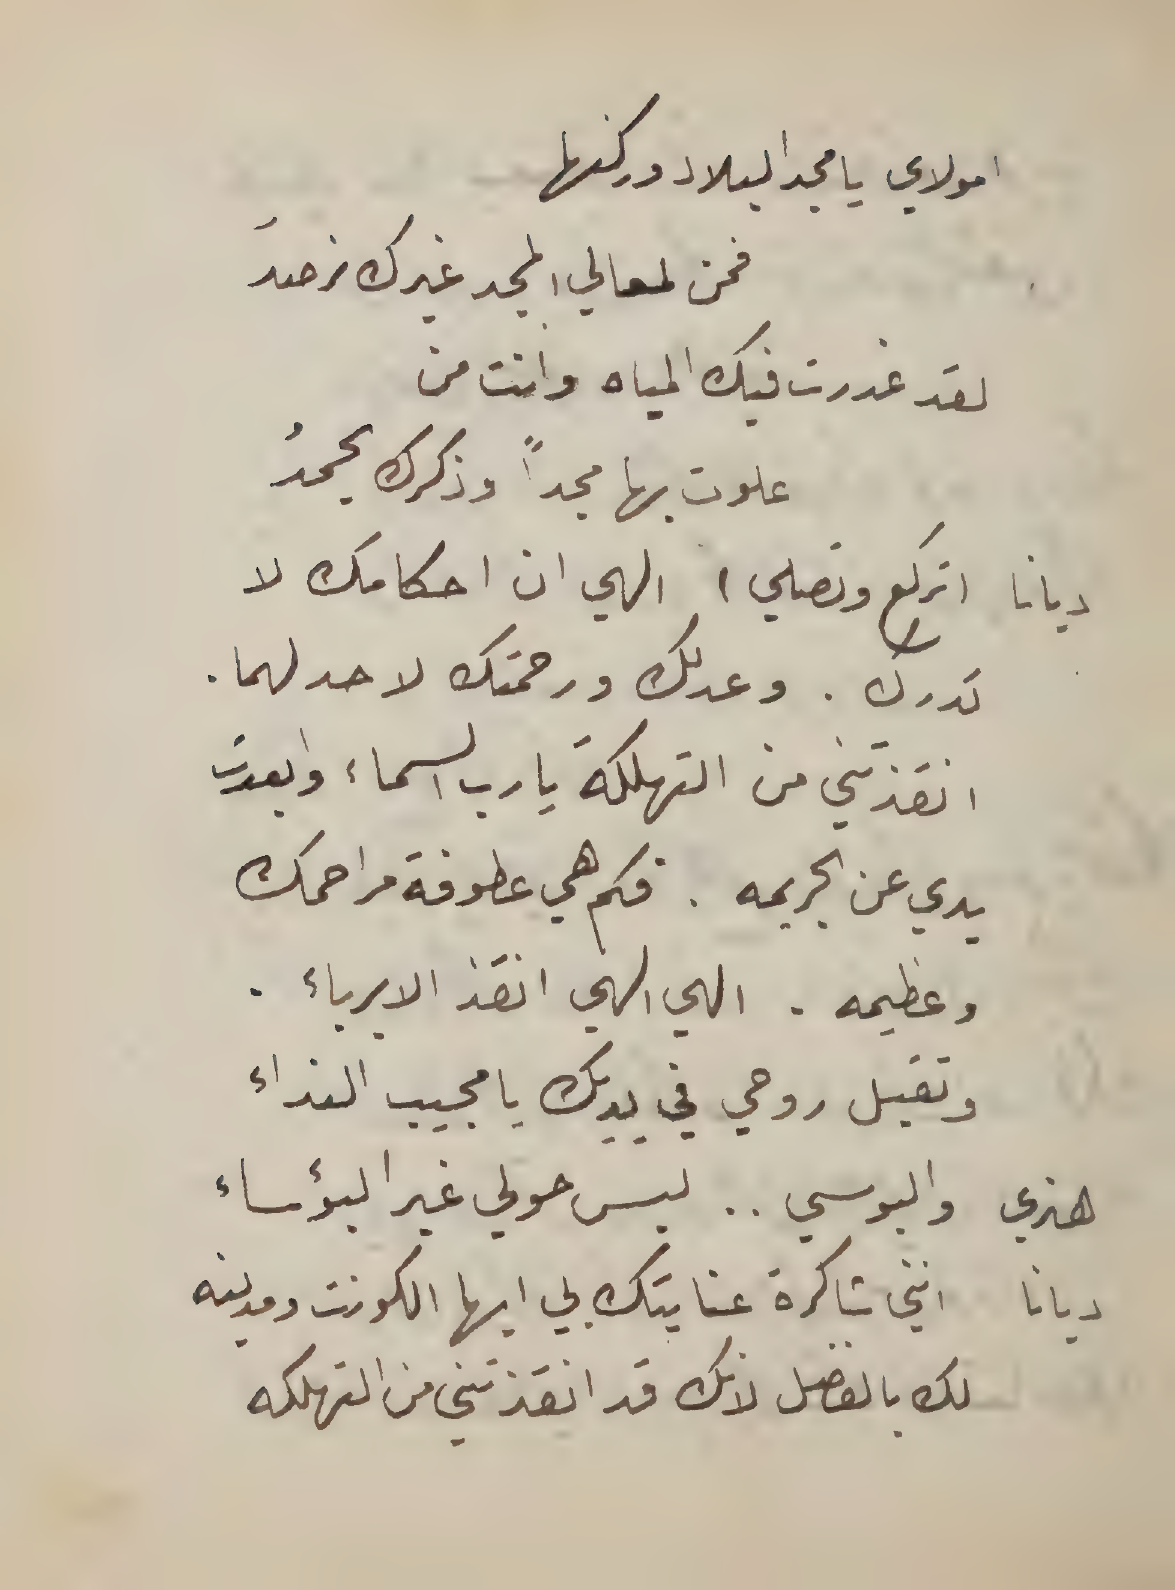 امولاي يا مجد البلاد وركنها
فمن لمعالي المجد غيرك نرصدَ
لقد غدرت فيك المياه وانت من
علوت بها مجداً وذكرك يحمدُ
ديانا (تركع وتصلي) الهي ان احكامك لا
تدرك . وعدلك ورحمتك لا حد لهما .
انقذتَني من التهلكة يا رب السماء وابعدتَ
يدي عن الجريمه . فكم هي عطوفة مراحمك
وعظيمه . الهي الهي انقذ الابرياء .
وتقبل روحي في يديك يا مجيب النداء
هنري والبوسي .. ليس حولي غير البؤساء
ديانا انني شاكرة عنايتك بي ايها الكونت ومدينه
لك بالفضل لانك قد انقذتني من التهلكه